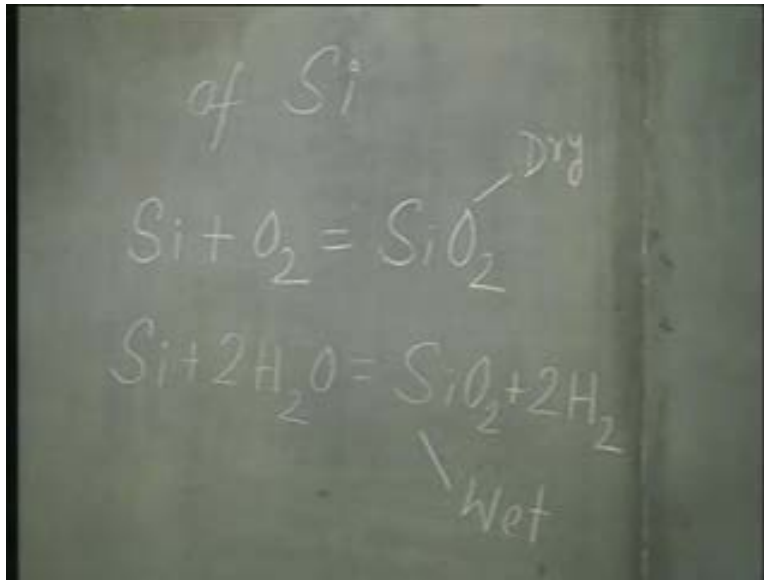 of Si
Dry
Si + O₂ = SiO₂
Si + 2H₂O = SiO₂ + 2H₂
Wet